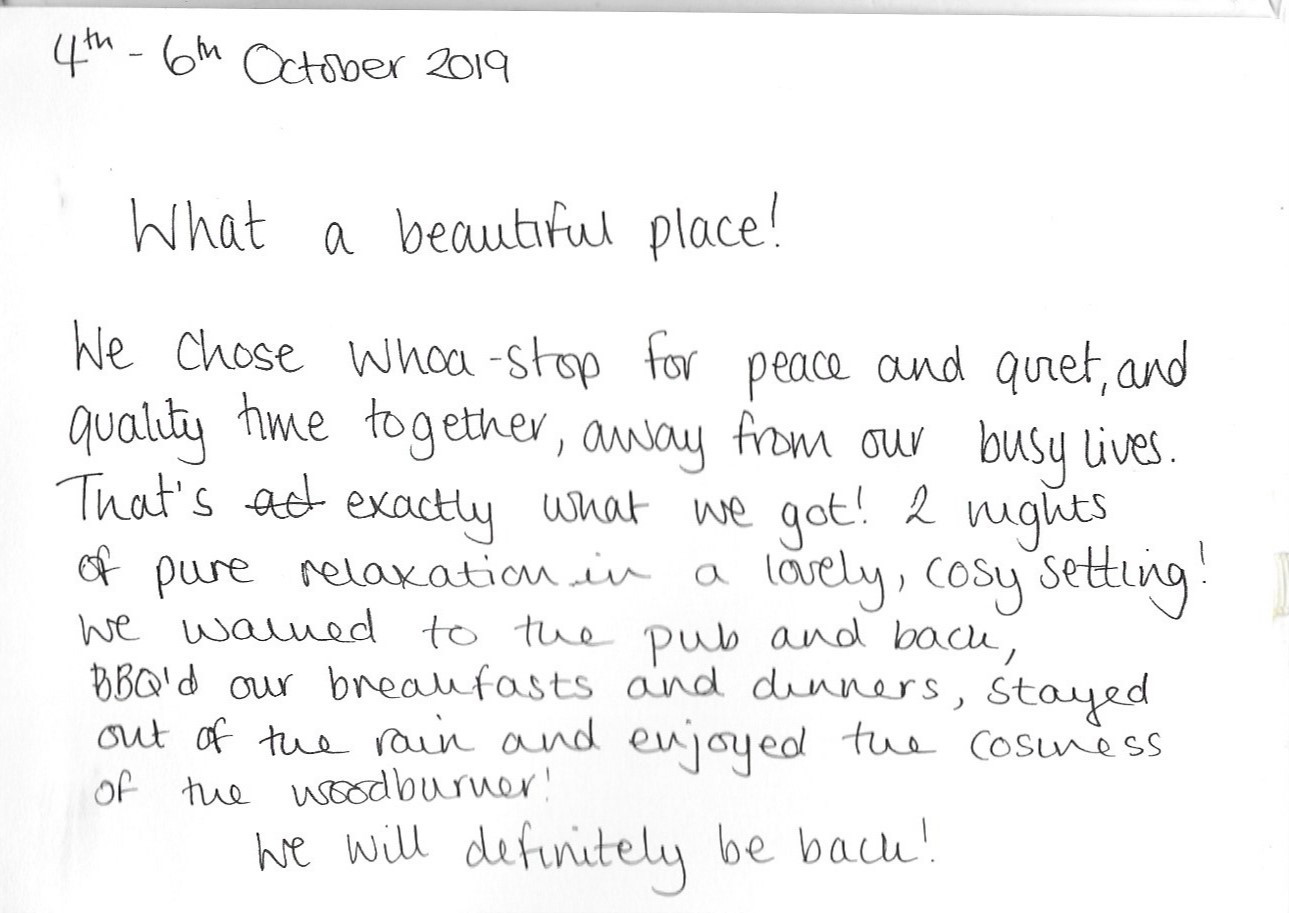 4th - 6th October 2019
What a beautiful place!
We chose Whoa-stop for peace and quiet, and
quality time together, away from our busy lives.
That's act exactly what we got! 2 nights
of pure relaxation in a lovely, cosy setting!
We walked to the pub and back,
BBQ'd our breakfasts and dinners, stayed
out of the rain and enjoyed the cosiness
of the woodburner!
We will definitely be back!